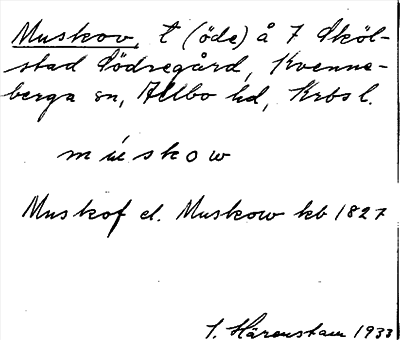 Muskov, t (öde) å 7 Sköl-
stad Södregård, Kvenne-
berga sn, Allbo hd, Krbs l.
múskow
Muskof el. Muskow kb 1827
I. Härenstam 1933